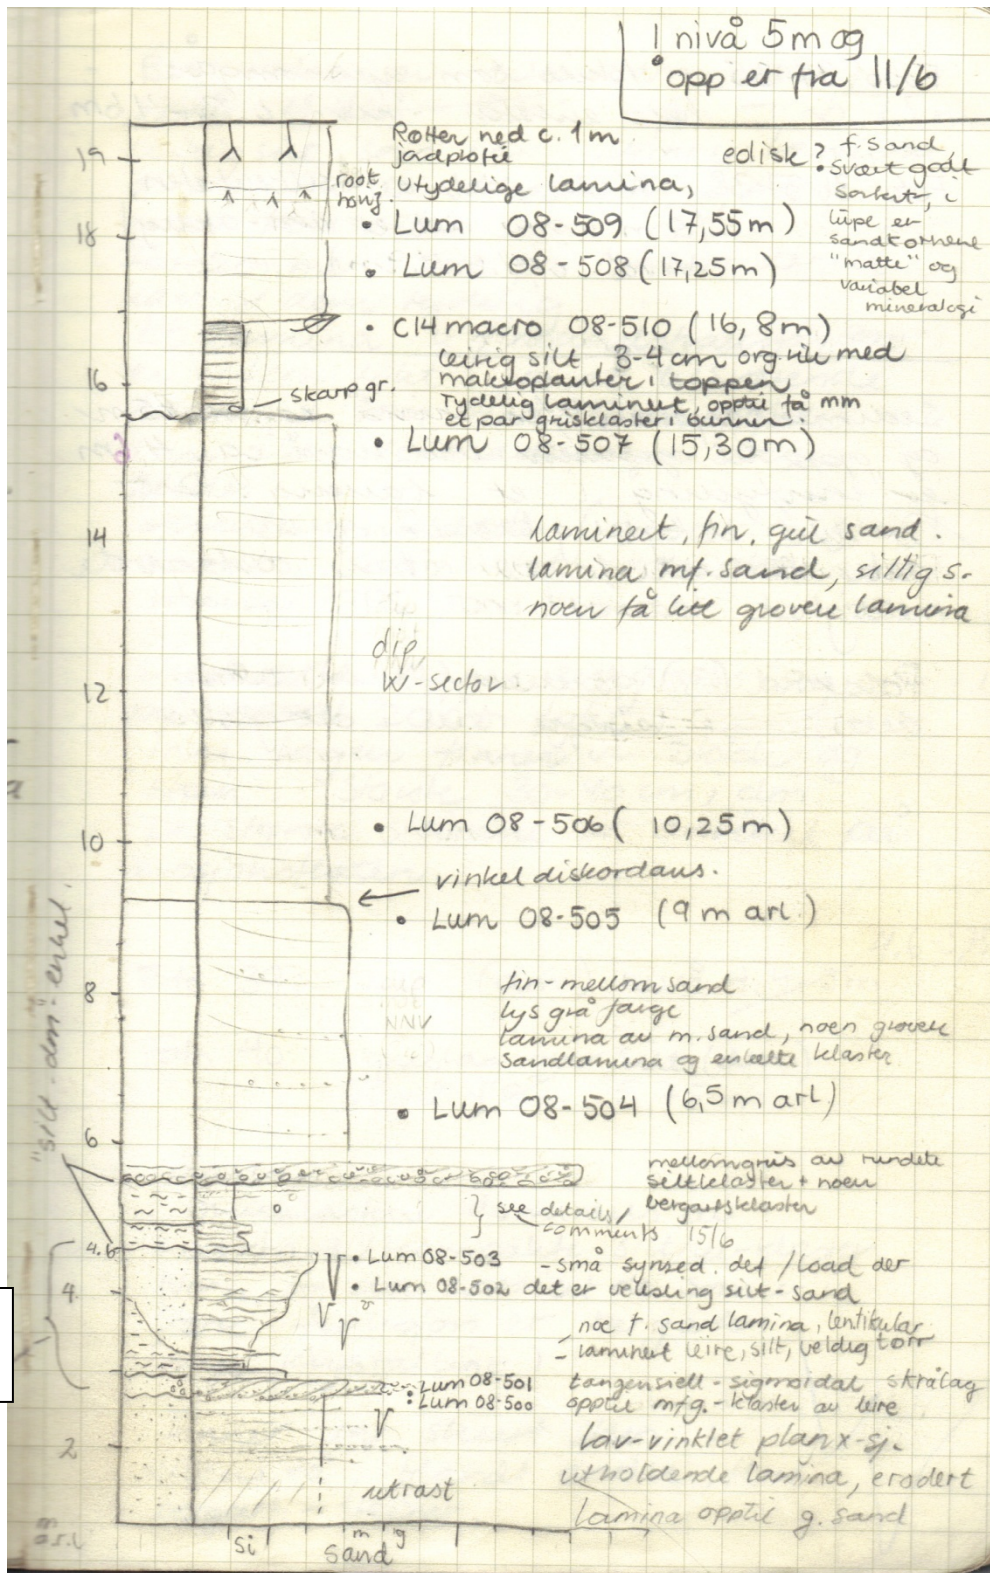 ! nivå 5m og
opp er fra 11/6
Røtter ned c. 1m
jordprofil
edisk?
f. sand,
svært godt
sortert, i
lupe er
sandkornene
"matte" og
variabel
mineralogi
19
root
horiz.
Utydelige lamina,
• Lum 08-509 (17,55m)
18
• Lum 08-508 (17,25m)
• C14 macro 08-510 (16,8m)
leirig silt, 3-4 cm org. rik med
makroplanter i toppen
Tydelig laminert, opptil få mm
et par grusklaster i bunnen.
16
skarp gr.
• Lum 08-507 (15,30m)
14
laminert, fin, gul sand.
lamina mf. sand, siltig s.
noen få litt grovere lamina
dip,
W-sector.
12
10
• Lum 08-506 (10,25m)
vinkeldiskordans.
• Lum 08-505 (9 m arl.)
8
fin-mellom sand
lys grå farge
lamina av m. sand, noen grovere
sandlamina og enkelte klaster
• Lum 08-504 (6,5m arl)
6
mellomgrus av rundete
siltklaster + noen
bergartsklaster
see details/
comments 15/6
4.6
• Lum 08-503
- små synsed. def/load der
4
• Lum 08-502 det er veksling silt-sand
noe f. sand lamina, lentikulær
- laminert leire, silt, veldig tørr
Lum 08-501
tangensiell-sigmoidal skrålag
: Lum 08-500
opptil mfg.-klaster av leire
2
lav-vinklet plan x-sj.
utrast
utholdende lamina, erodert
lamina opptil g. sand
m
o.s.l.
Si
m
g
Sand